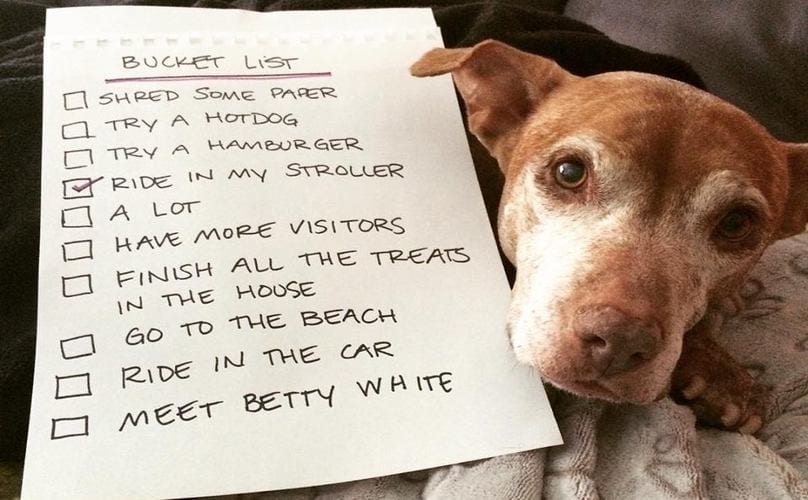 BUCKET LIST
SHRED SOME PAPER
TRY A HOTDOG
TRY A HAMBURGER
RIDE IN MY STROLLER
A LOT
HAVE MORE VISITORS
FINISH ALL THE TREATS
IN THE HOUSE
GO TO THE BEACH
RIDE IN THE CAR
MEET BETTY WHITE